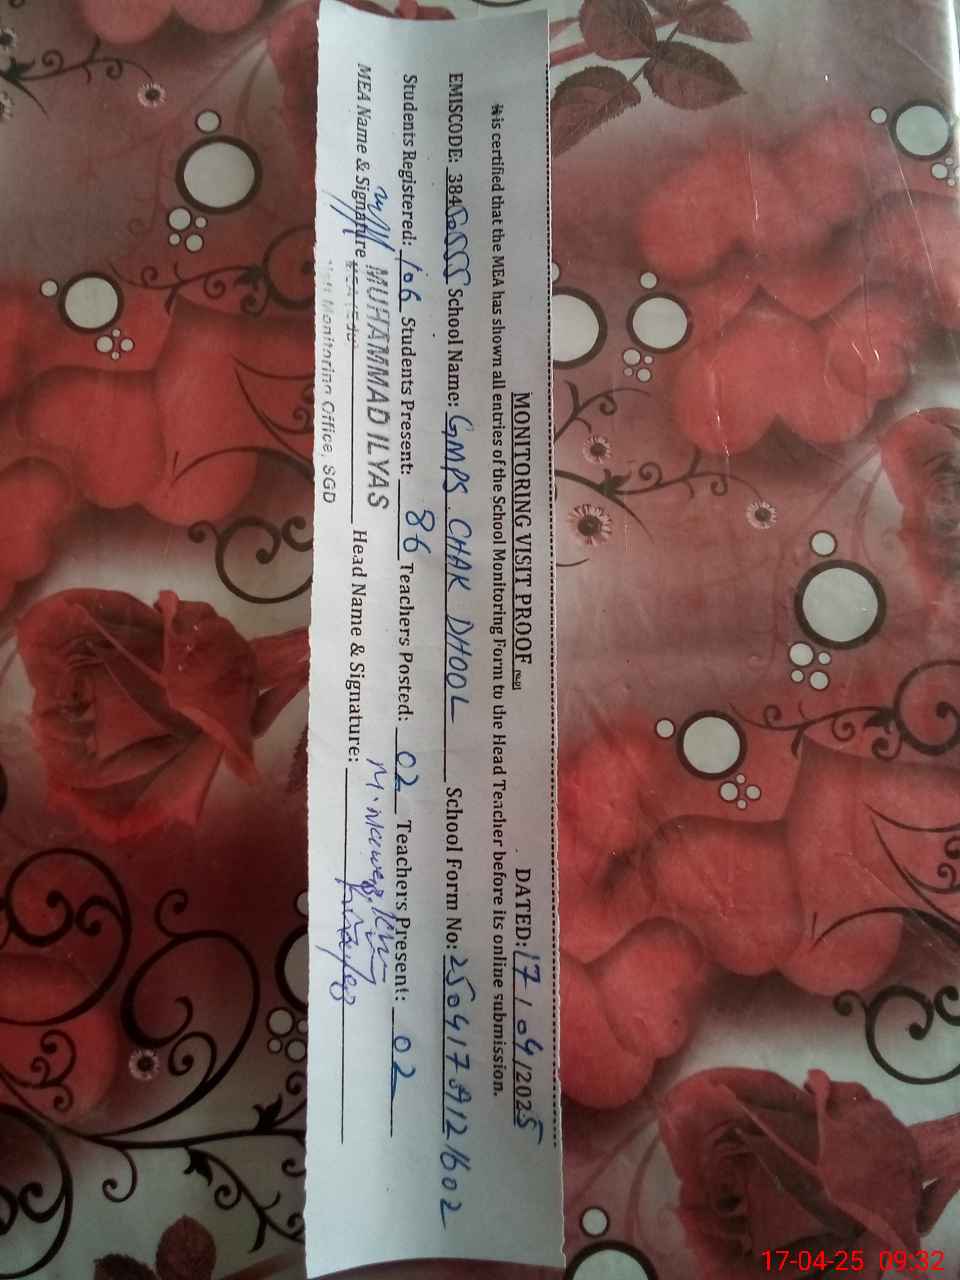 MONITORING VISIT PROOF DATED: 17/04/2025
It is certified that the MEA has shown all entries of the School Monitoring Form to the Head Teacher before its online submission.
EMISCODE: 384 School Name: GMPS CHAK DHOOL School Form No:
Students Registered: 106 Students Present: 86 Teachers Posted: 02 Teachers Present: 02
MEA Name & Signature MUHAMMAD ILYAS Head Name & Signature:
Monitoring Office, SGD
17-04-25 09:32